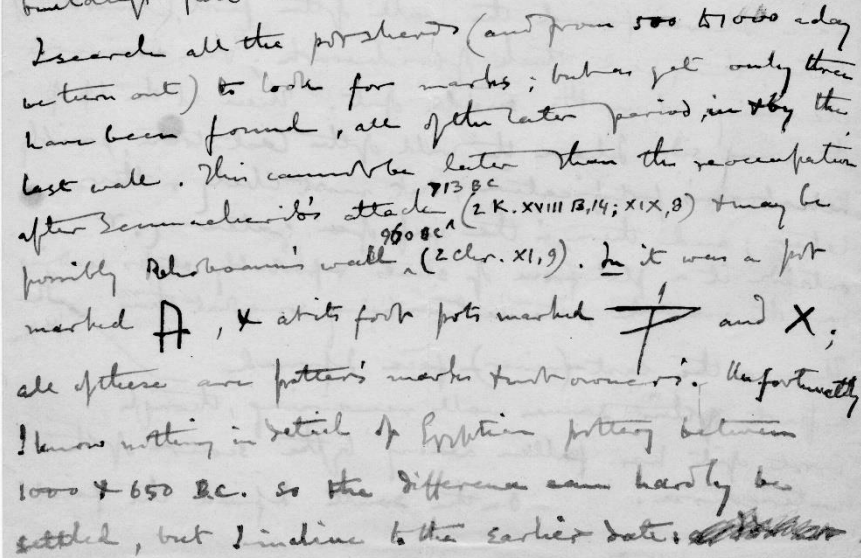 I search all the potsherds (and from 500 to 1000 a day
we turn out) to look for marks; but as yet only three
have been found, all of the later period, in & by the
last wall. This cannot be later than the reoccupation
713 BC
after Sennacherib's attack ^ (2 K. XVIII 13, 14; XIX, 8) & may be
960 BC
possibly Rehoboam's wall ^ (2 Chr. XI, 9). In it was a pot
marked , & at its foot pots marked and X;
all of these are potter's marks & not owner's. Unfortunately
I know nothing in detail of Egyptian pottery between
1000 & 650 B.C. so the difference can hardly be
settled, but I incline to the earlier date.